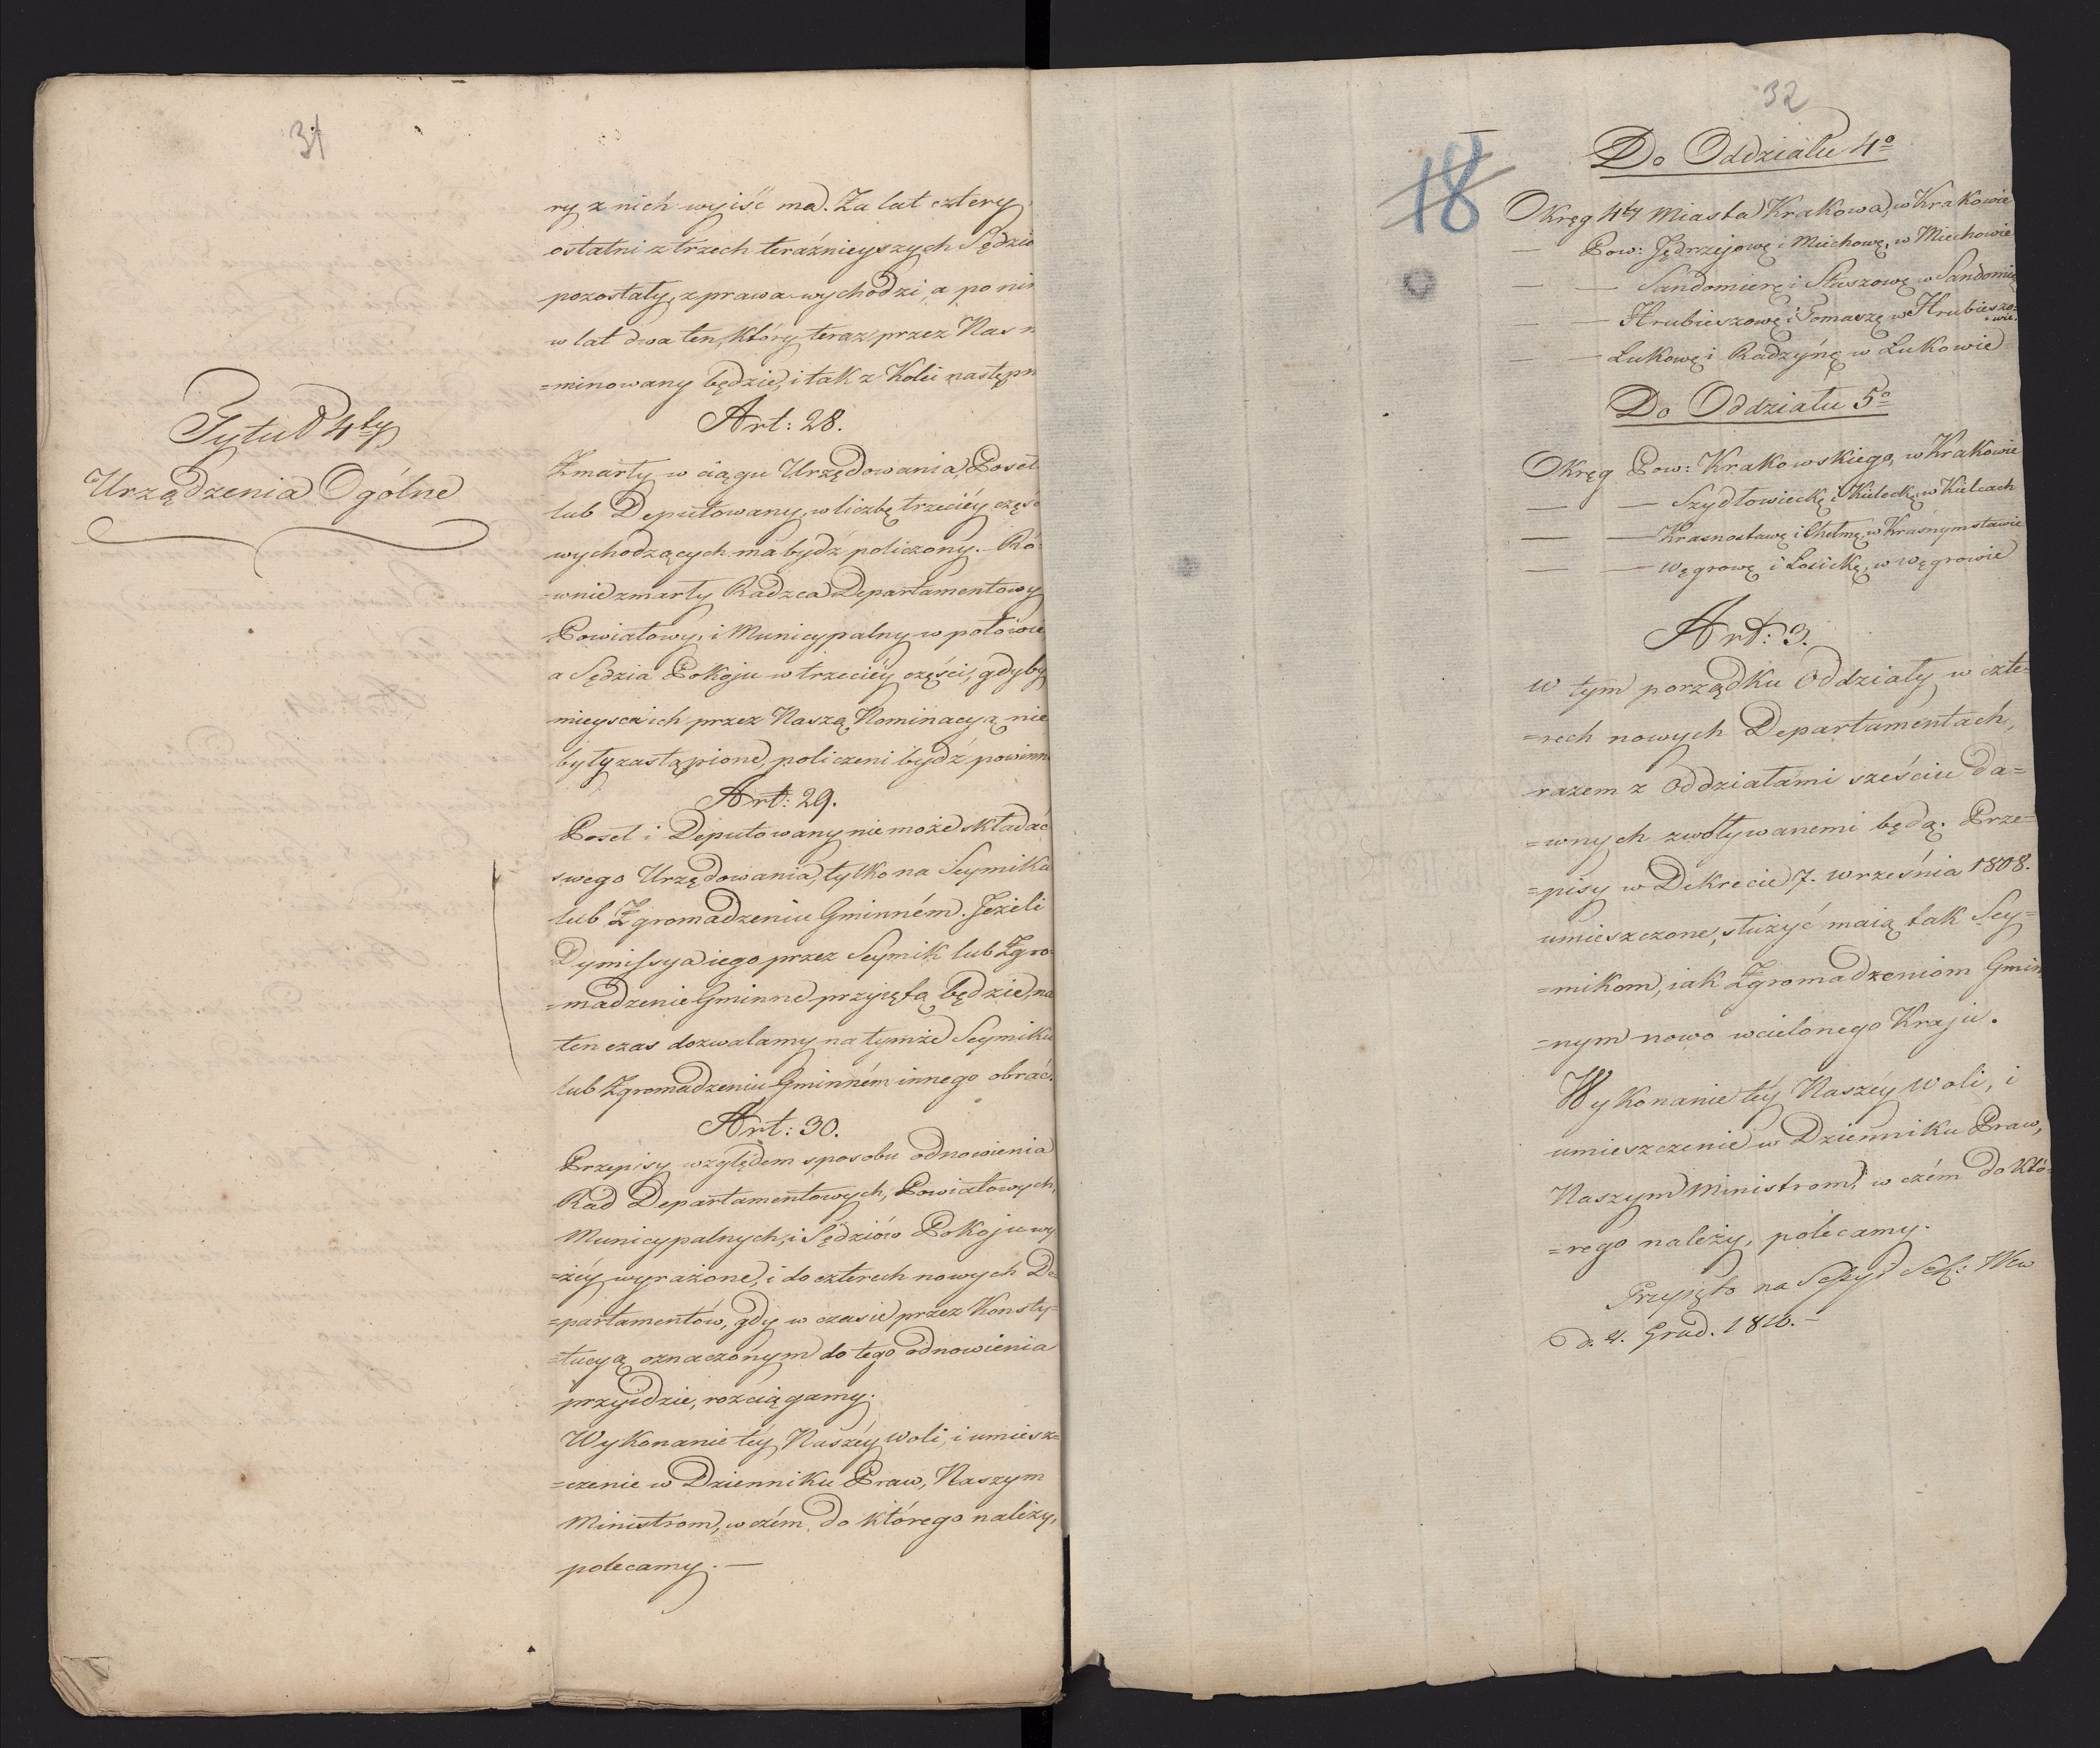 31
Tytuł 4ty
Urządzenia Ogólne
ry z nich wyiść ma. Za lat cztery
ostatni z trzech teraźnieyszych Sędzio
pozostały, z prawa wychodzi, a po nim
w lat dwa ten, który teraz przez Nas n
=minowany będzie, i tak z Kolei następn
Art: 28.
Zmarły w ciągu Urzędowania, Poseł
lub Deputowany, w liczbę trzeciéy częśc
wychodzących ma bydź policzony. Ró=
=wnie zmarły Radzca Departamentowy
Powiatowy, i Municypalny w połowie
a Sędzia Pokoju w trzeciéy części, gdyby
mieysca ich przez Naszą Nominacyą nie
były zastąpione, policzeni bydź powinn
Art: 29.
Poseł i Deputowany nie może składać
swego Urzędowania, tylko na Seymiku
lub Zgromadzeniu Gminném. Jeżeli
Dymissya iego przez Seymik lub Zgro=
=madzenie Gminne przyiętą będzie, na
ten czas dozwalamy na tymże Seymiku
lub Zgromadzeniu Gminném innego obrać.
Art: 30.
Przepisy względem sposobu odnowienia
Rad Departamentowych, Powiatowych,
Municypalnych, i Sędziów Pokoju wy
=żéy wyrażone, i do czterech nowych De=
=partamentów, gdy w czasie przez Konsty=
=tucyą oznaczonym do tego odnowienia
przyidzie, rozciągamy.
Wykonanie téy Naszéy woli, i umiesz=
=czenie w Dzienniku Praw, Naszym
Ministrom, w czém do którego należy,
polecamy. —
32
18
Do Oddziału 4o
Okręg 4ty Miasta Krakowa, w Krakowie
— Pow: Jędrzejowę i Miechowę, w Miechowie
— — Sandomierę i Staszowę w Sandomie
— — Hrubieszowę i Tomaszę w Hrubieszo=
=wie.
— — Łukowę i Radzynę w Łukowie
Do Oddziału 5o
Okręg Pow: Krakowskiego, w Krakowie
— — Szydłowieckę i Kieleckę, w Kielcach
— — Krasnostawę i Chełmę, w Krasnymstawie
— — Węgrowę i Łosickę, w Węgrowie
Art: 3.
W tym porządku Oddziały w czte=
=rech nowych Departamentach,
razem z Oddziałami sześciu da=
=wnych zwoływanemi będą. Prze=
=pisy w Dekrecie 7. września 1808.
umieszczone, służyć maią tak Sey=
=mikom, iak Zgromadzeniom Gmin
=nym nowo wcielonego Kraju.
Wykonanie téy Naszéy woli, i
umieszczenie w Dzienniku Praw,
Naszym Ministrom, w czém do któ=
=rego należy, polecamy.
Przyięto na Sessyi
Grud. 1810. —